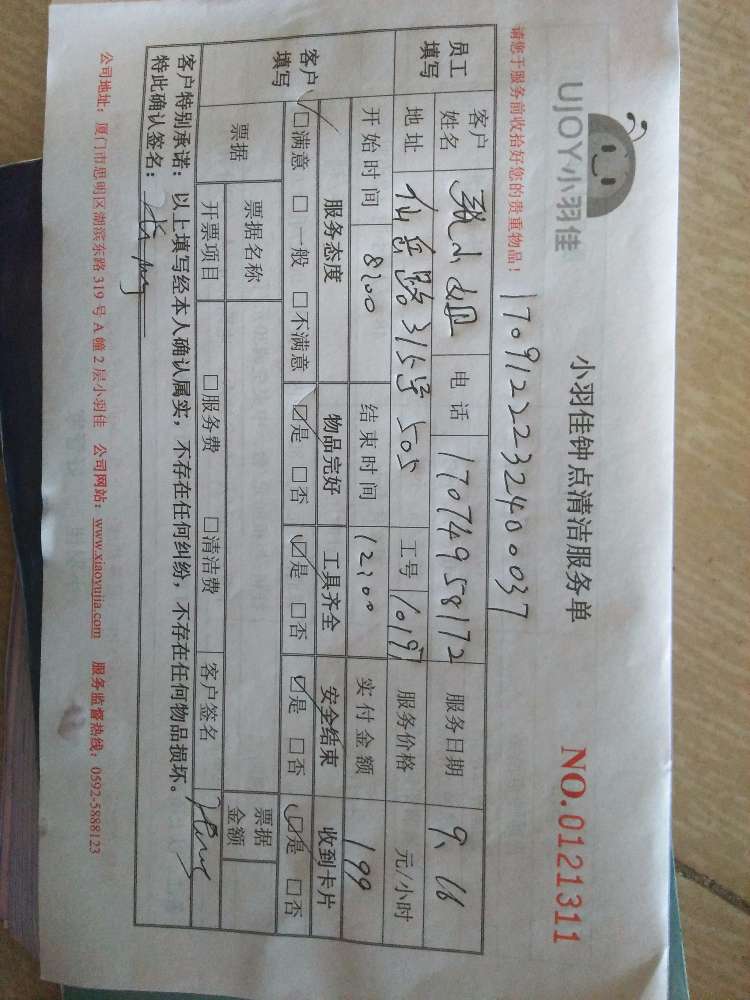 UJOY小羽佳
小羽佳钟点清洁服务单
NO.0121311
请您于服务前收拾好您的贵重物品！
170912223240037
员工填写 客户姓名 小姐 电话 17074958172 服务日期 9.16
地址 仙岳路315号505 工号 10197 服务价格 元/小时
开始时间 8:00 结束时间 12:00 实付金额 199
客户填写 服务态度 物品完好 工具齐全 安全结束 收到卡片
☑满意 □一般 □不满意 ☑是 □否 ☑是 □否 ☑是 □否 ☑是 □否
票据 票据名称 票据金额
开票项目 □服务费 □清洁费 客户签名
客户特别承诺：以上填写经本人确认属实，不存在任何纠纷，不存在任何物品损坏。
特此确认签名：
公司地址：厦门市思明区湖滨东路 319 号 A 幢 2 层小羽佳 公司网站：www.xiaoyujia.com 服务监督热线：0592-5888123